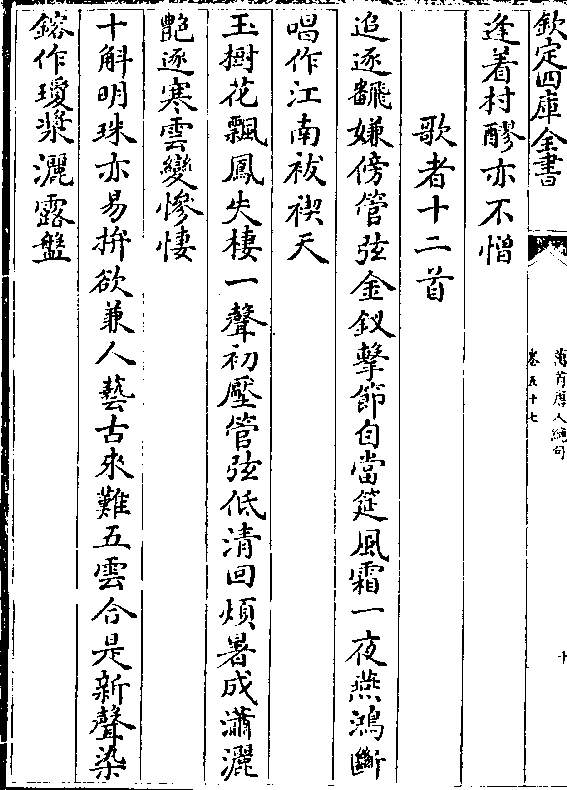 欽定四庫全書
萬首唐人絶句
卷五十七
十
逢着村醪亦不憎
歌者十二首
追逐翻嫌傍管弦金釵擊節自當筵風霜一夜燕鴻斷
唱作江南祓禊天
玉樹花飄鳳失棲一聲初壓管弦低清回煩暑成瀟灑
艷逐寒雲變慘悽
十斛明珠亦易拚欲兼人藝古來難五雲合是新聲染
鎔作瓊漿灑露盤